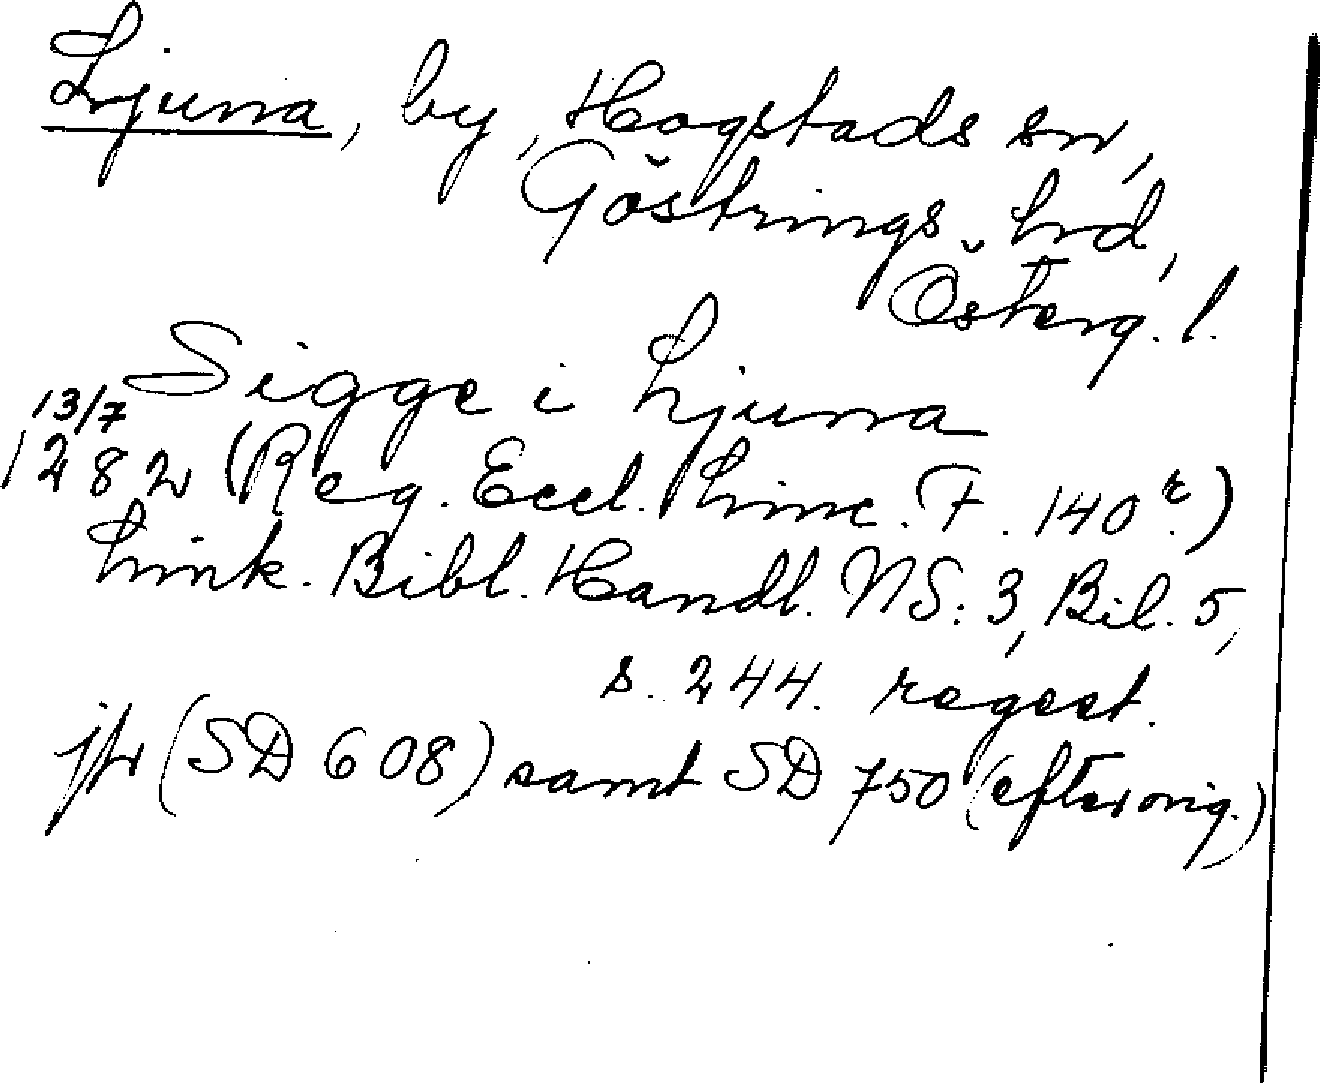 Ljunna, by, Hogstads sn,
Göstrings hrd,
Österg. l.
Sigge i Ljunna
13/7
1282 (Reg. Eccl. Linc. F. 140r.)
Link. Bibl. Handl. NS: 3, Bil. 5,
s. 244. regest.
jfr (SD 608) samt SD 750 (efter orig.)